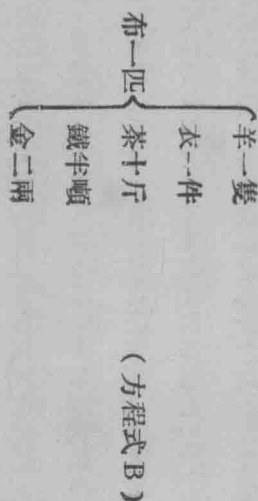 布一匹
羊一隻
衣一件
茶十斤
鐵半噸
金二兩
(方程式B)